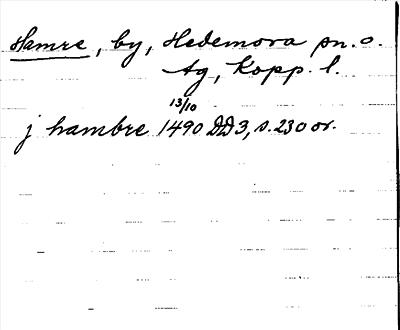 Hamre, by, Hedemora sn. o.
tg, Kopp. l.
13/10
j hambre 1490 DD3, s. 230 or.